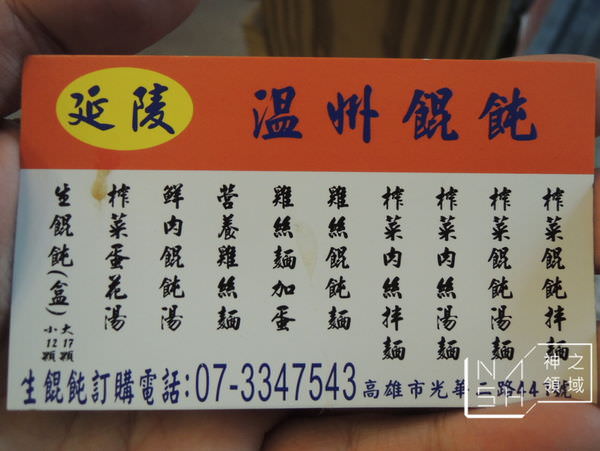 延陵
溫州餛飩
榨菜餛飩拌麵
榨菜餛飩湯麵
榨菜肉絲湯麵
榨菜肉絲拌麵
雞絲餛飩麵
雞絲麵加蛋
營養雞絲麵
鮮肉餛飩湯
榨菜蛋花湯
生餛飩(盒)大17顆
小12顆
生餛飩訂購電話:07-3347543高雄市光華二路44號
神之領域